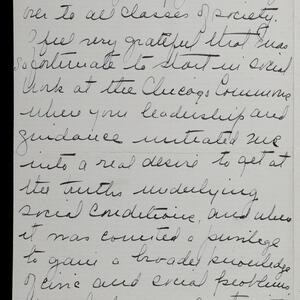 over to all classes of society.
I feel very grateful that I was
so fortunate to start in social
work at the Chicago Commons
where your leadership and
guidance initiated me
into a real desire to get at
the truths underlying
social conditions, and when
it was counted a privilege
to gain a broader knowledge
of civic and social problems